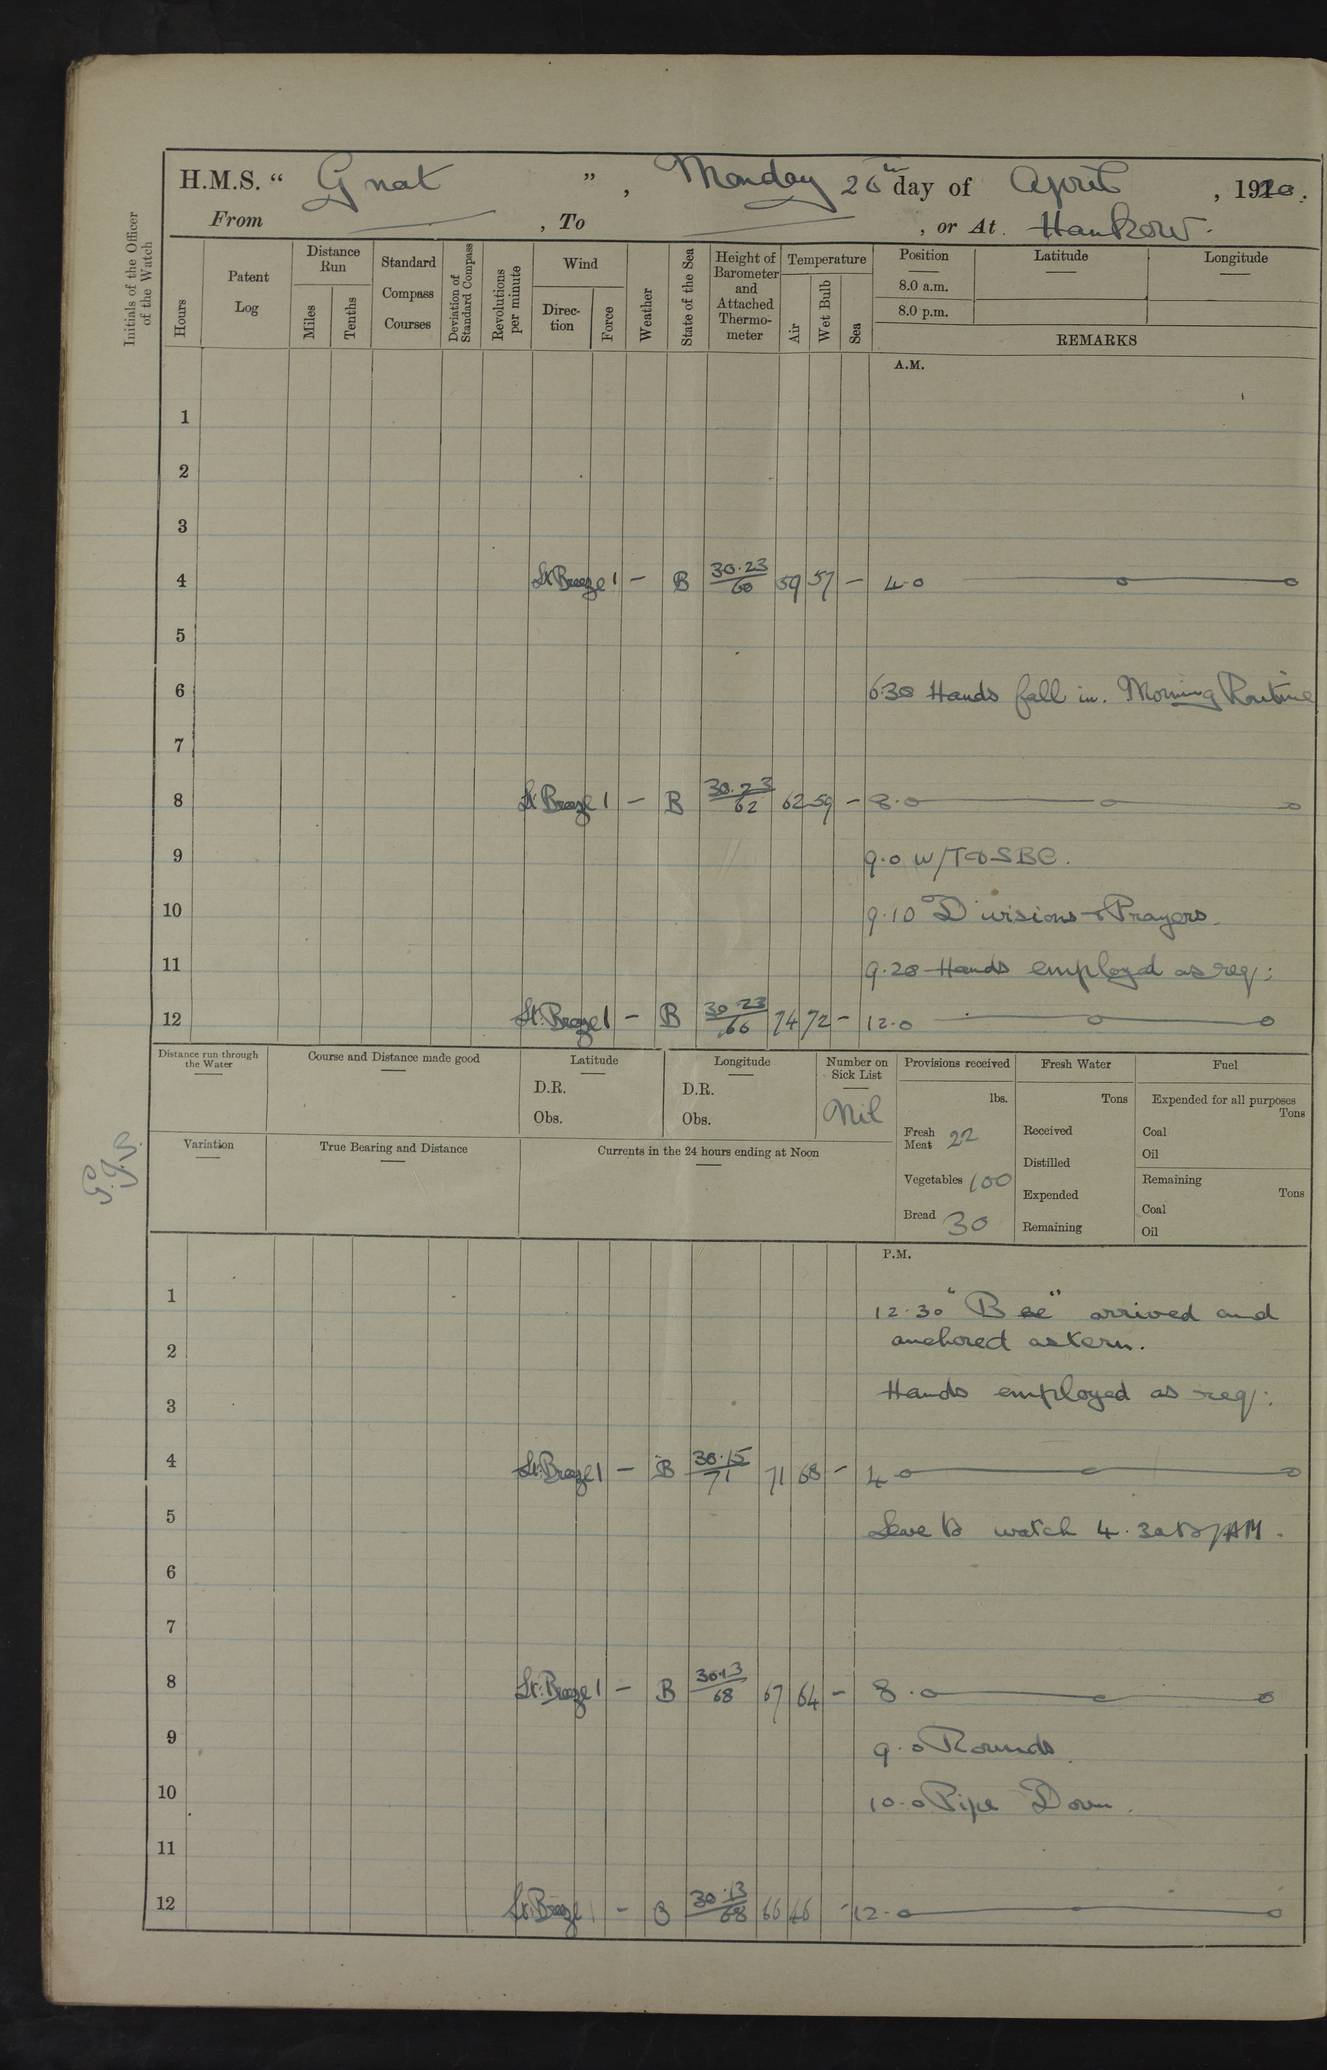 H.M.S. “ Gnat ” , Monday 26th day of April , 1920.
From , To , or At Hankow.
Initials of the Officer of the Watch
Hours
Patent Log
Distance Run
Miles
Tenths
Standard Compass Courses
Deviation of Standard Compass
Revolutions per minute
Wind
Direction
Force
Weather
State of the Sea
Height of Barometer and Attached Thermometer
Temperature
Air
Wet Bulb
Sea
Position
8.0 a.m.
8.0 p.m.
Latitude
Longitude
REMARKS
A.M.
1
2
3
4 Lt Breeze 1 - B 30.23/60 59 57 - 4.0
5
6 6.30 Hands fall in. Morning Routine
7
8 Lt Breeze 1 - B 30.23/62 62 59 - 8.0
9 9.0 W/T & SBC.
10 9.10 Divisions & Prayers.
11 9.20 Hands employed as req:
12 Lt. Breeze 1 - B 30.23/66 74 72 - 12.0
Distance run through the Water
Course and Distance made good
Latitude
D.R.
Obs.
Longitude
D.R.
Obs.
Number on Sick List
Nil
Provisions received
lbs.
Fresh Meat 22
Vegetables 100
Bread 30
Fresh Water
Tons
Received
Distilled
Expended
Remaining
Fuel
Expended for all purposes
Tons
Coal
Oil
Remaining
Tons
Coal
Oil
Variation
True Bearing and Distance
Currents in the 24 hours ending at Noon
P.M.
1 12.30 "Bee" arrived and
2 anchored astern.
3 Hands employed as req:
4 Lt. Breeze 1 - B 30.15/71 71 68 - 4
5 watch 4.30 AM.
6
7
8 Lt. Breeze 1 - B 30.13/68 67 64 - 8.0
9 9.0 Rounds.
10 10.0 Pipe Down.
11
12 Lt. Breeze 1 - B 30.13/68 66 - 12.0